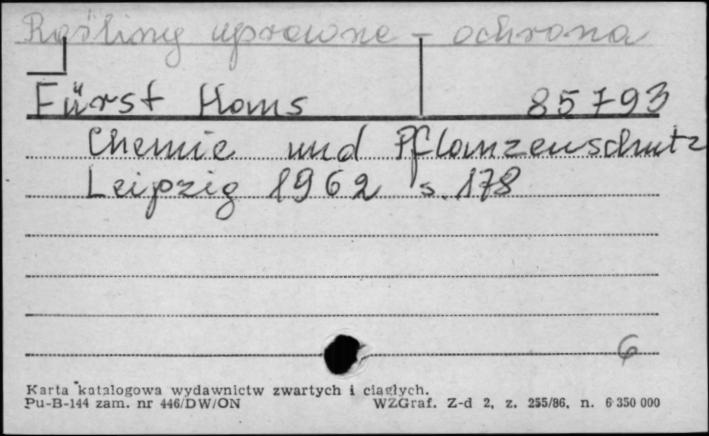 Rośliny uprawne - ochrona
Fürst Hans 85793
Chemie und Pflanzenschutz
Leipzig 1962 s. 178
6
Karta katalogowa wydawnictw zwartych i ciągłych.
Pu-B-144 zam. nr 446/DW/ON WZGraf. Z-d 2, z. 255/86, n. 6 350 000